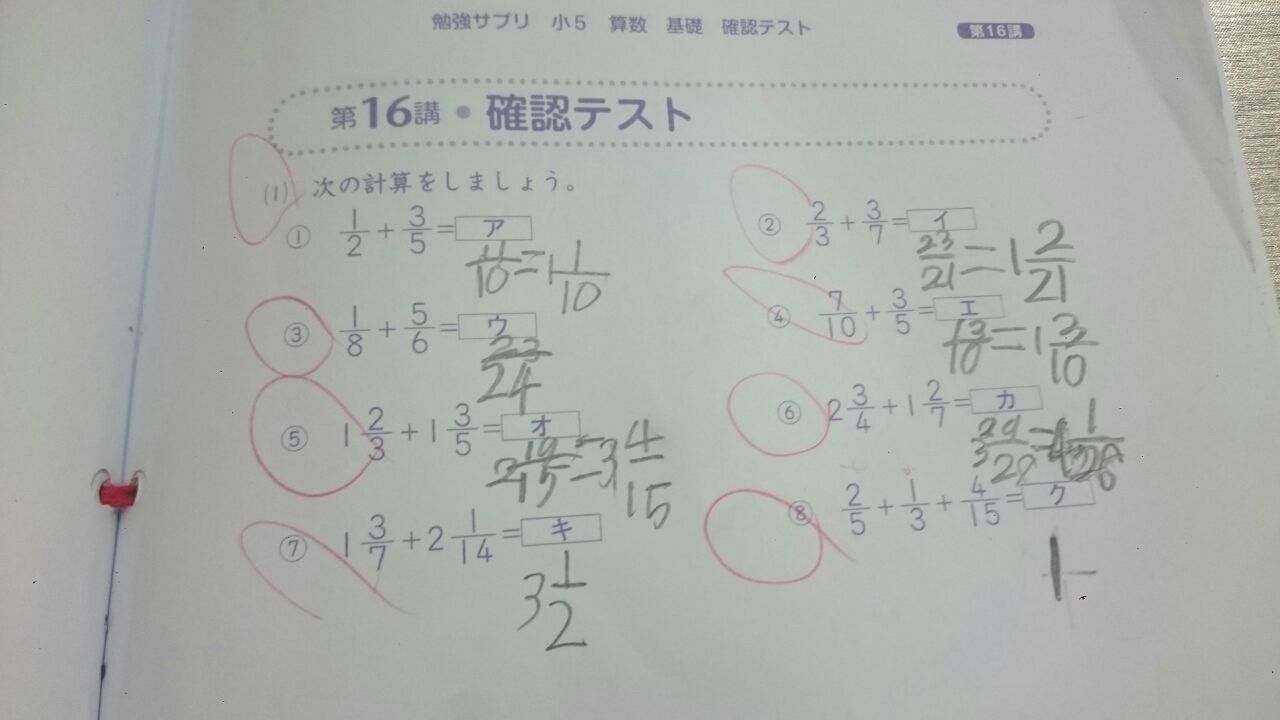 勉強サプリ 小5 算数 基礎 確認テスト
第16講
第16講・確認テスト
(1) 次の計算をしましょう。
① 1/2 + 3/5 = ア
11/10 = 1 1/10
② 2/3 + 3/7 = イ
23/21 = 1 2/21
③ 1/8 + 5/6 = ウ
23/24
④ 7/10 + 3/5 = エ
13/10 = 1 3/10
⑤ 1 2/3 + 1 3/5 = オ
2 19/15 = 3 4/15
⑥ 2 3/4 + 1 2/7 = カ
3 29/28 = 4 1/28
⑦ 1 3/7 + 2 1/14 = キ
3 1/2
⑧ 2/5 + 1/3 + 4/15 = ク
1